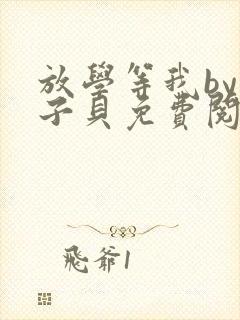 放學等我by
子貝免費閱
飛爺1